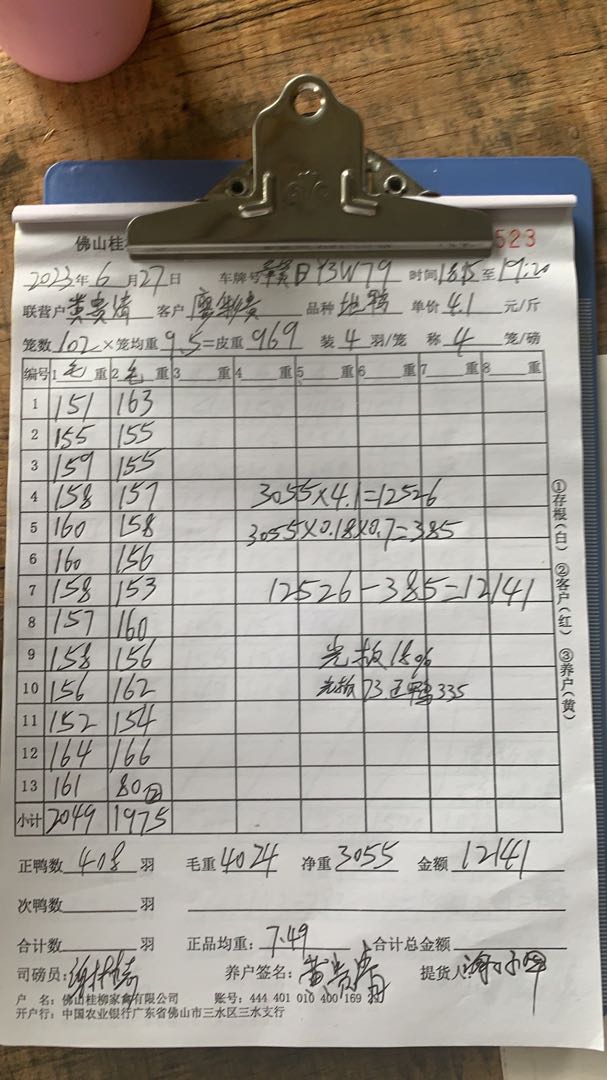 佛山桂
523
2023年6月27日 车牌号 日Y3W79 时间18:15至19:20
联营户 黄贵清 客户 品种 地鸭 单价 4.1 元/斤
笼数 102 × 笼均重 9.5 = 皮重 969 装 4 羽/笼 称 4 笼/磅
编号 1 毛 重 2 毛 重 3 重 4 重 5 重 6 重 7 重 8 重
1 151 163
2 155 155
3 159 155
4 158 157 3055×4.1=12526
5 160 158 3055×0.18×0.7=385
6 160 156
7 158 153 12526-385=12141
8 157 160
9 158 156 光板18%
10 156 162 光板73.正鸭335
11 152 154
12 164 166
13 161 80
小计 2049 1975
①存根(白) ②客户(红) ③养户(黄)
正鸭数 408 羽 毛重 4024 净重 3055 金额 12141
次鸭数 羽
合计数 羽 正品均重: 7.49 合计总金额
司磅员: 养户签名: 黄贵清 提货人:
户 名: 佛山桂柳家禽有限公司 账号: 444 401 010 400 169
开户行: 中国农业银行广东省佛山市三水区三水支行